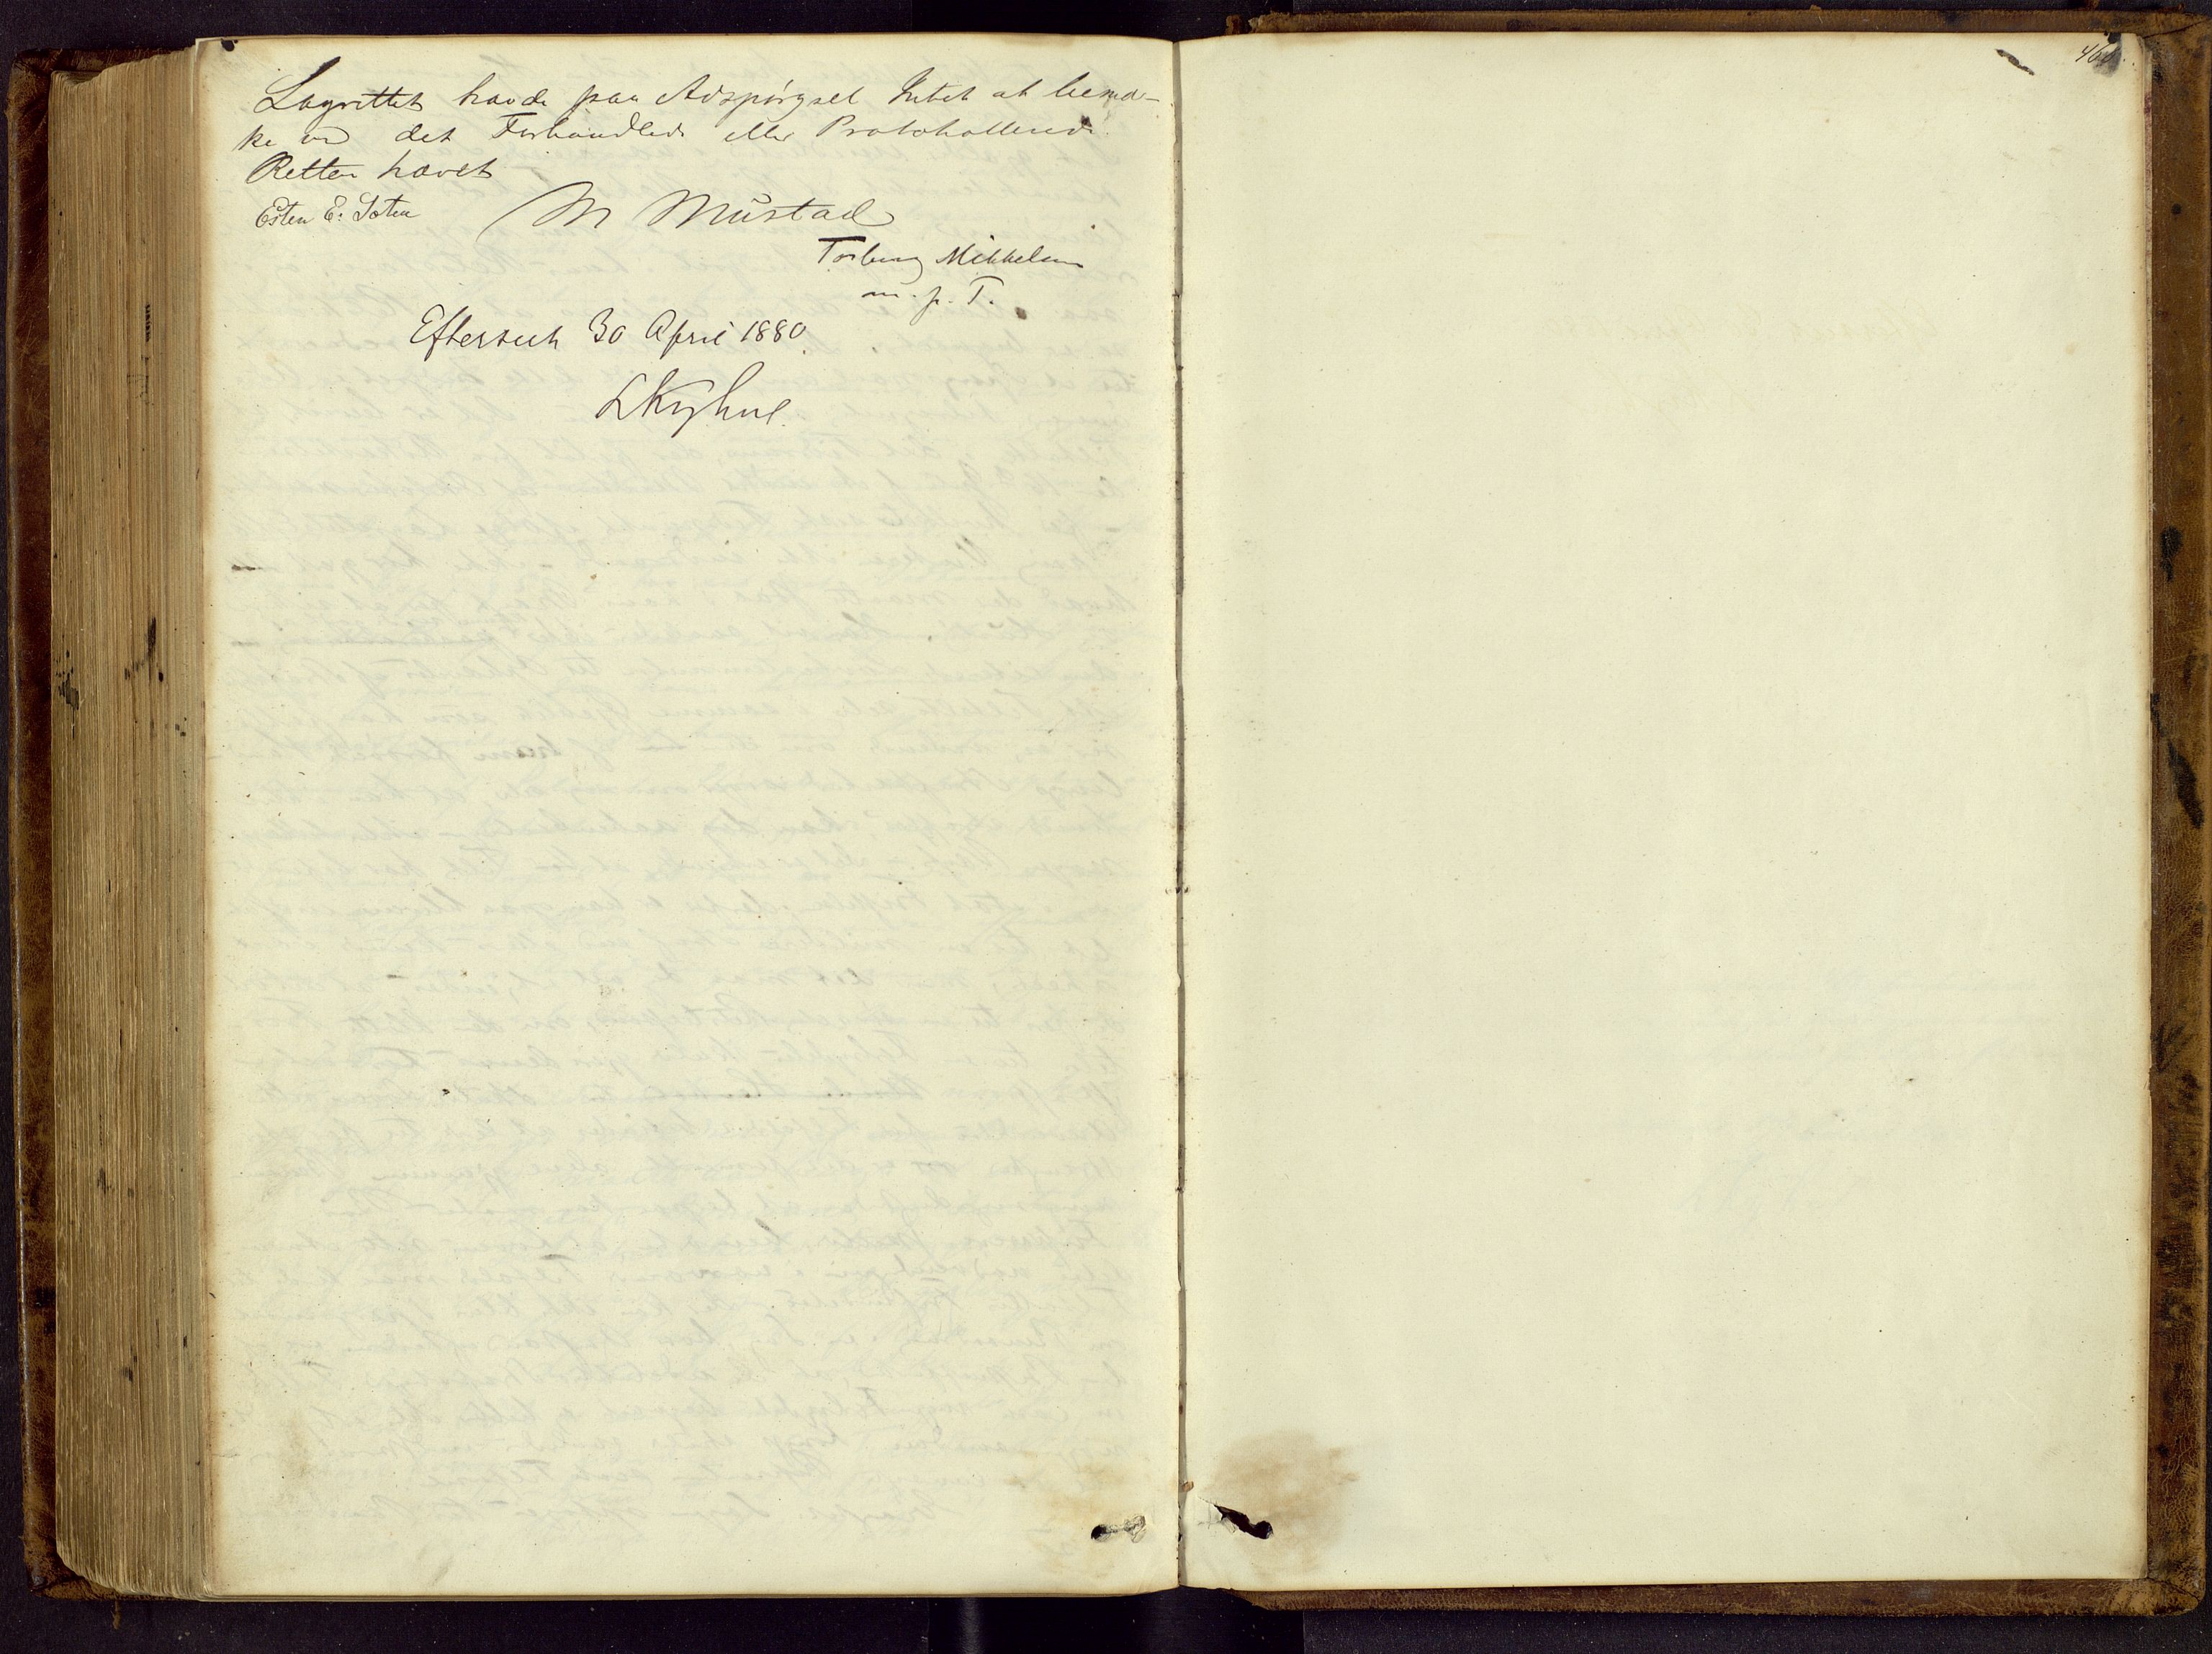 Lagrettet havde paa Adspørgsel Intet at bemær-
ke ved det Forhandlede eller Protokollerede.
Retten hævet
Esten E. Soten M Mustad
Torberg Mikkelsen
m. p. T.
Efterseet 30 April 1880.
LKyhul.